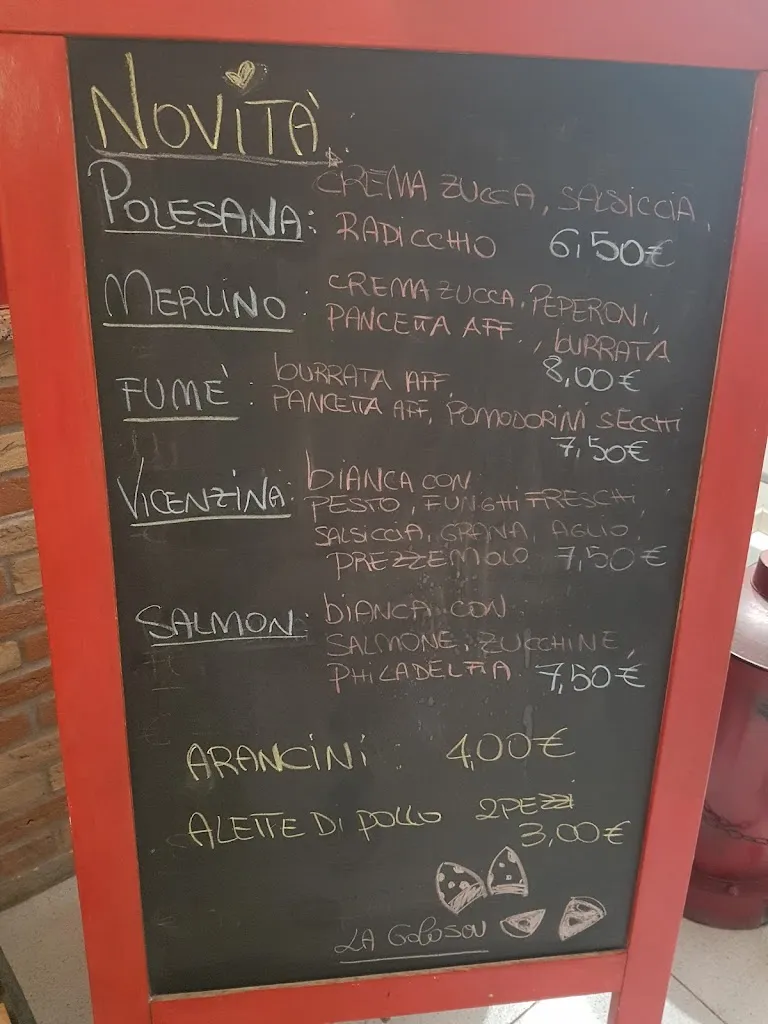 NOVITÀ
POLESANA: CREMA ZUCCA, SALSICCIA,
RADICCHIO 6,50€
MERLINO: CREMA ZUCCA, PEPERONI,
PANCETTA AFF., BURRATA
8,00€
FUMÈ: BURRATA AFF,
PANCETTA AFF, POMODORINI SECCHI
7,50€
VICENZINA: BIANCA CON
PESTO, FUNGHI FRESCHI,
SALSICCIA, GRANA, AGLIO,
PREZZEMOLO 7,50€
SALMON: BIANCA CON
SALMONE, ZUCCHINE,
PHILADELFIA 7,50€
ARANCINI: 4,00€
ALETTE DI POLLO 2 PEZZI
3,00€
LA GOLOSOU